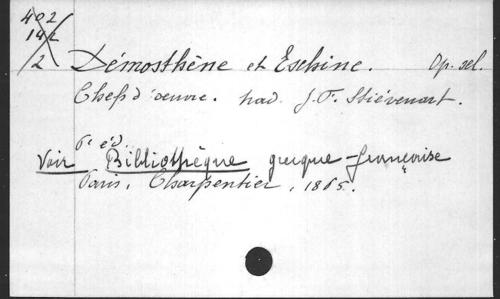 402
142
2
Démosthène et Eschine. Op. sel.
Chefs d'oeuvre. trad. J. F. Stiévenart.
6e éd.
Voir Bibliothèque grecque-française
Paris, Charpentier, 1865.